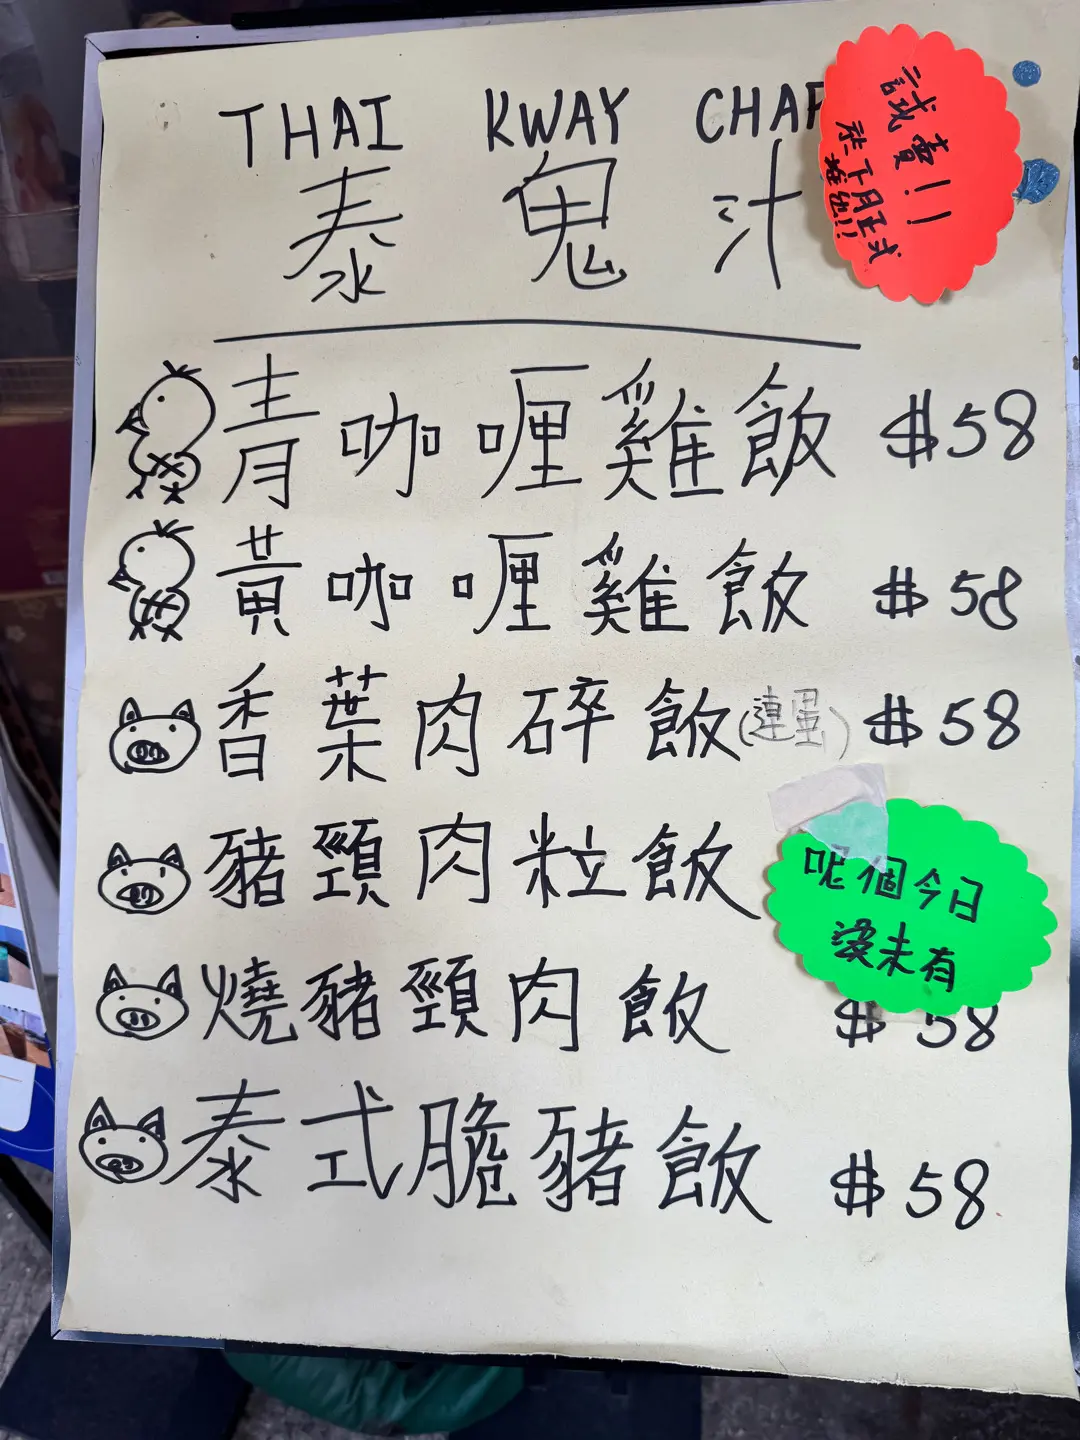 THAI KWAY CHAP
泰鬼汁
試賣!!
於下月正式
推出!!
青咖喱雞飯 $58
黃咖喱雞飯 $58
香葉肉碎飯(連蛋) $58
豬頸肉粒飯
呢個今日
還未有
燒豬頸肉飯 $58
泰式脆豬飯 $58